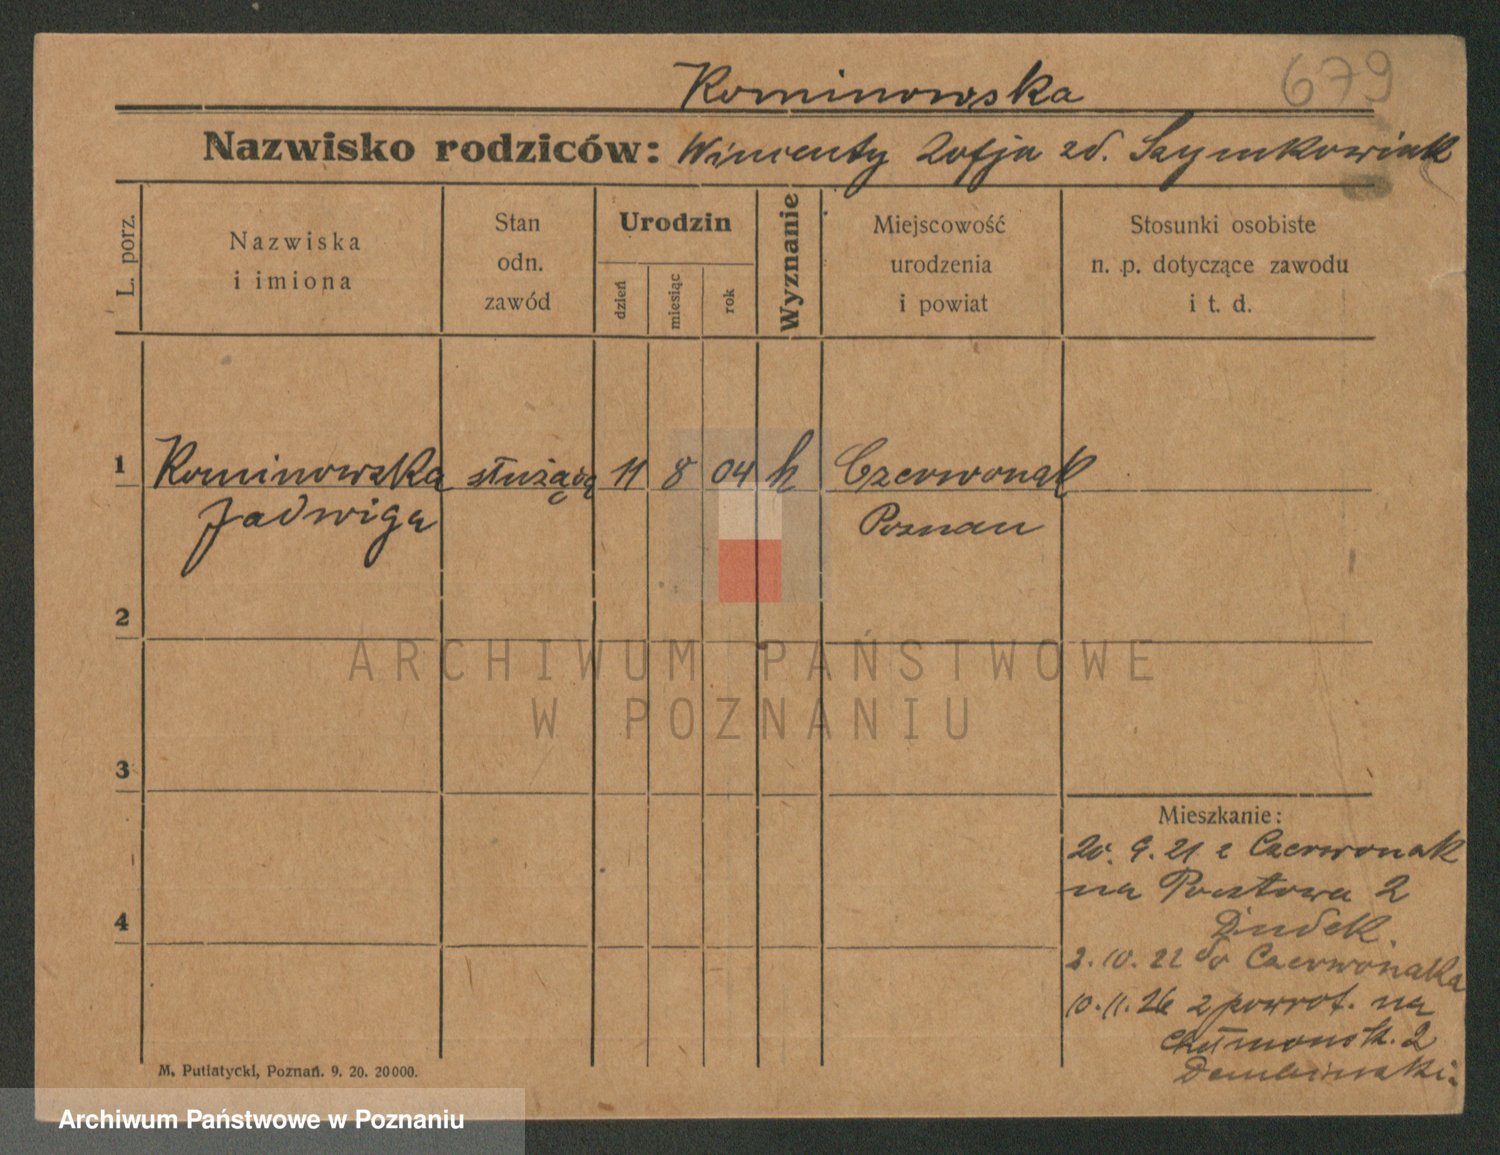 679
Kominowska
Nazwisko rodziców: Wincenty Zofja zd. Szymkowiak
L. porz.
Nazwiska
i imiona
Stan
odn.
zawód
Urodzin
dzień
miesiąc
rok
Wyznanie
Miejscowość
urodzenia
i powiat
Stosunki osobiste
n. p. dotyczące zawodu
i t. d.
1 Kominowska służąca 11 8 04 k Czerwonak
Jadwiga Poznań
2
3
4
Mieszkanie:
20. 9. 21 z Czerwonak
na Pocztowa 2
Dudek.
2. 10. 22 do Czerwonaka
10. 11. 26 z powrot. na
Chełmonsk. 2
Dembinski
M. Putiatycki, Poznań. 9. 20. 20000.
ARCHIWUM PAŃSTWOWE
W POZNANIU
Archiwum Państwowe w Poznaniu